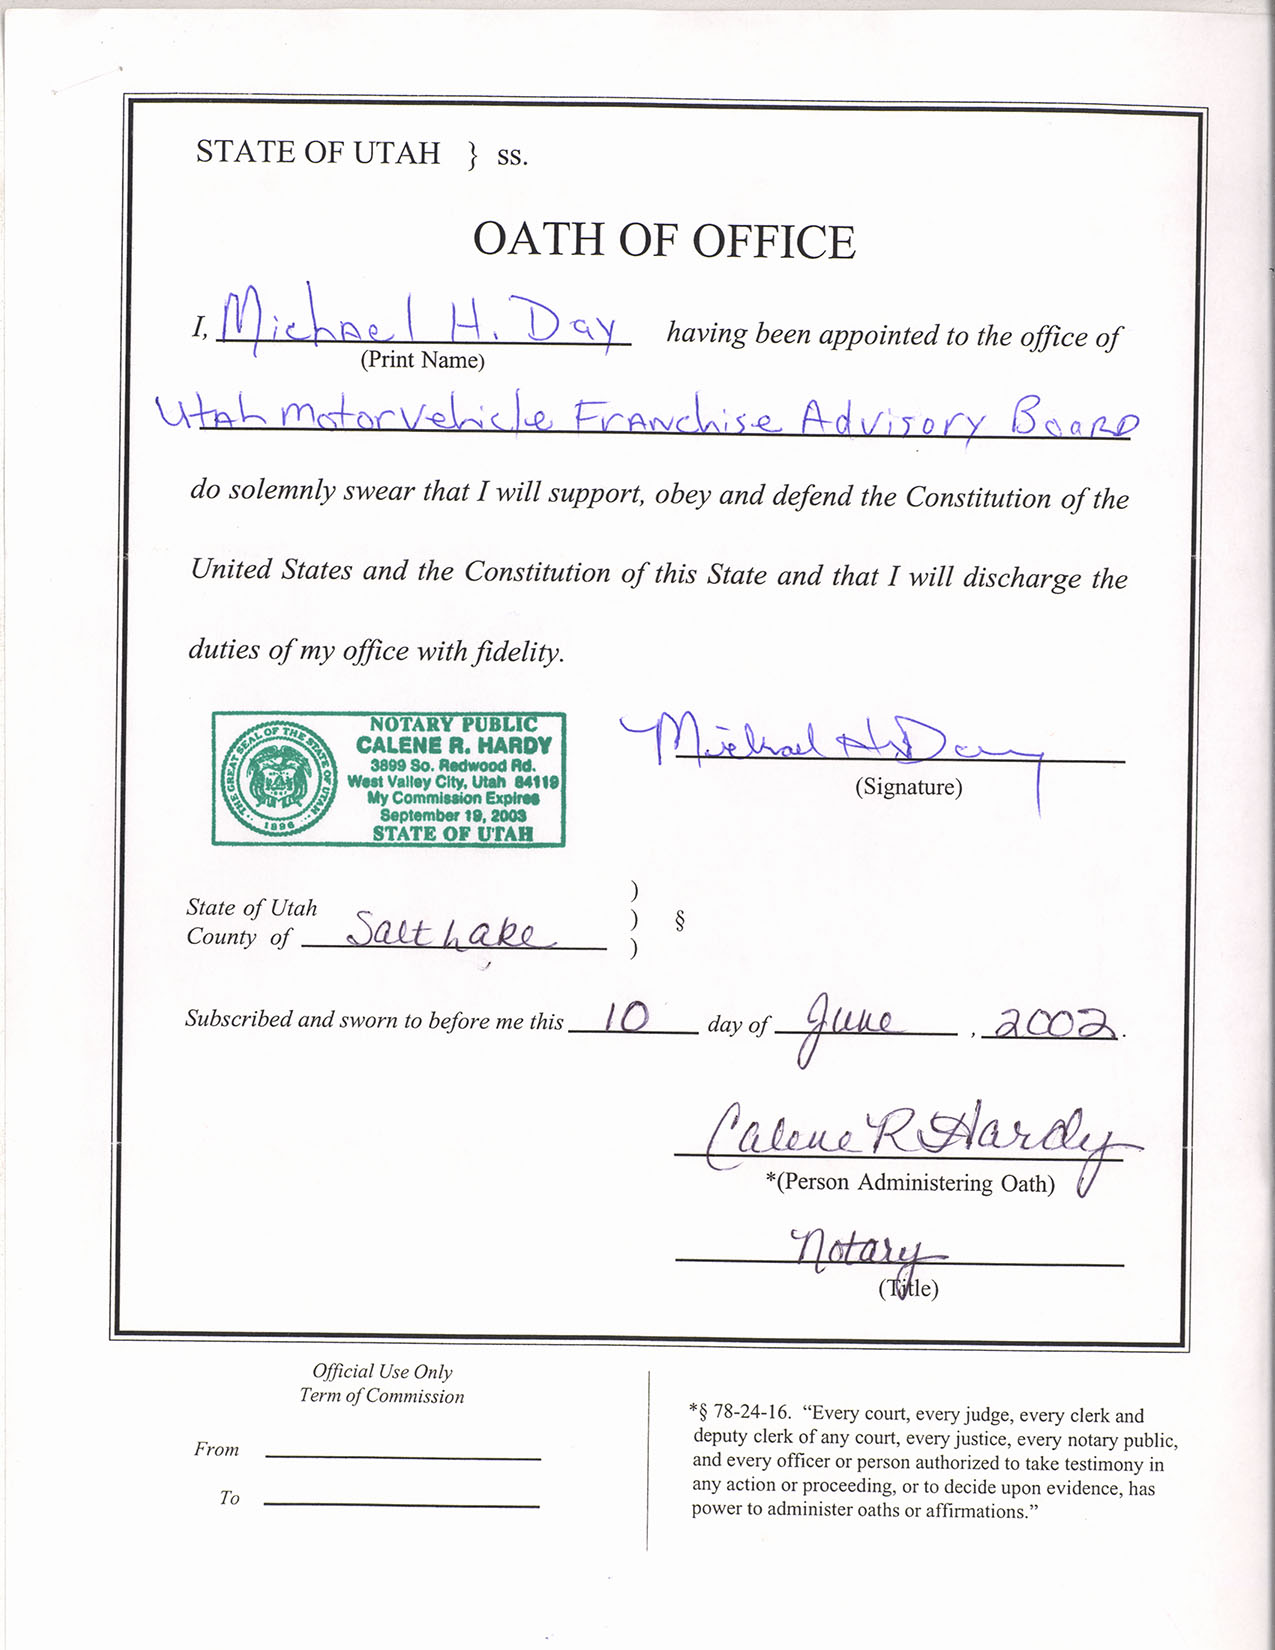 STATE OF UTAH } ss.
OATH OF OFFICE
I, Michael H. Day having been appointed to the office of
(Print Name)
Utah Motor Vehicle Franchise Advisory Board
do solemnly swear that I will support, obey and defend the Constitution of the
United States and the Constitution of this State and that I will discharge the
duties of my office with fidelity.
THE GREAT SEAL OF THE STATE OF UTAH
1896
NOTARY PUBLIC
CALENE R. HARDY
3899 So. Redwood Rd.
West Valley City, Utah 84119
My Commission Expires
September 19, 2003
STATE OF UTAH
Michael H. Day
(Signature)
State of Utah )
County of Salt Lake ) §
)
Subscribed and sworn to before me this 10 day of June, 2002.
Calene R Hardy
*(Person Administering Oath)
Notary
(Title)
Official Use Only
Term of Commission
From
To
*§ 78-24-16. “Every court, every judge, every clerk and
deputy clerk of any court, every justice, every notary public,
and every officer or person authorized to take testimony in
any action or proceeding, or to decide upon evidence, has
power to administer oaths or affirmations.”